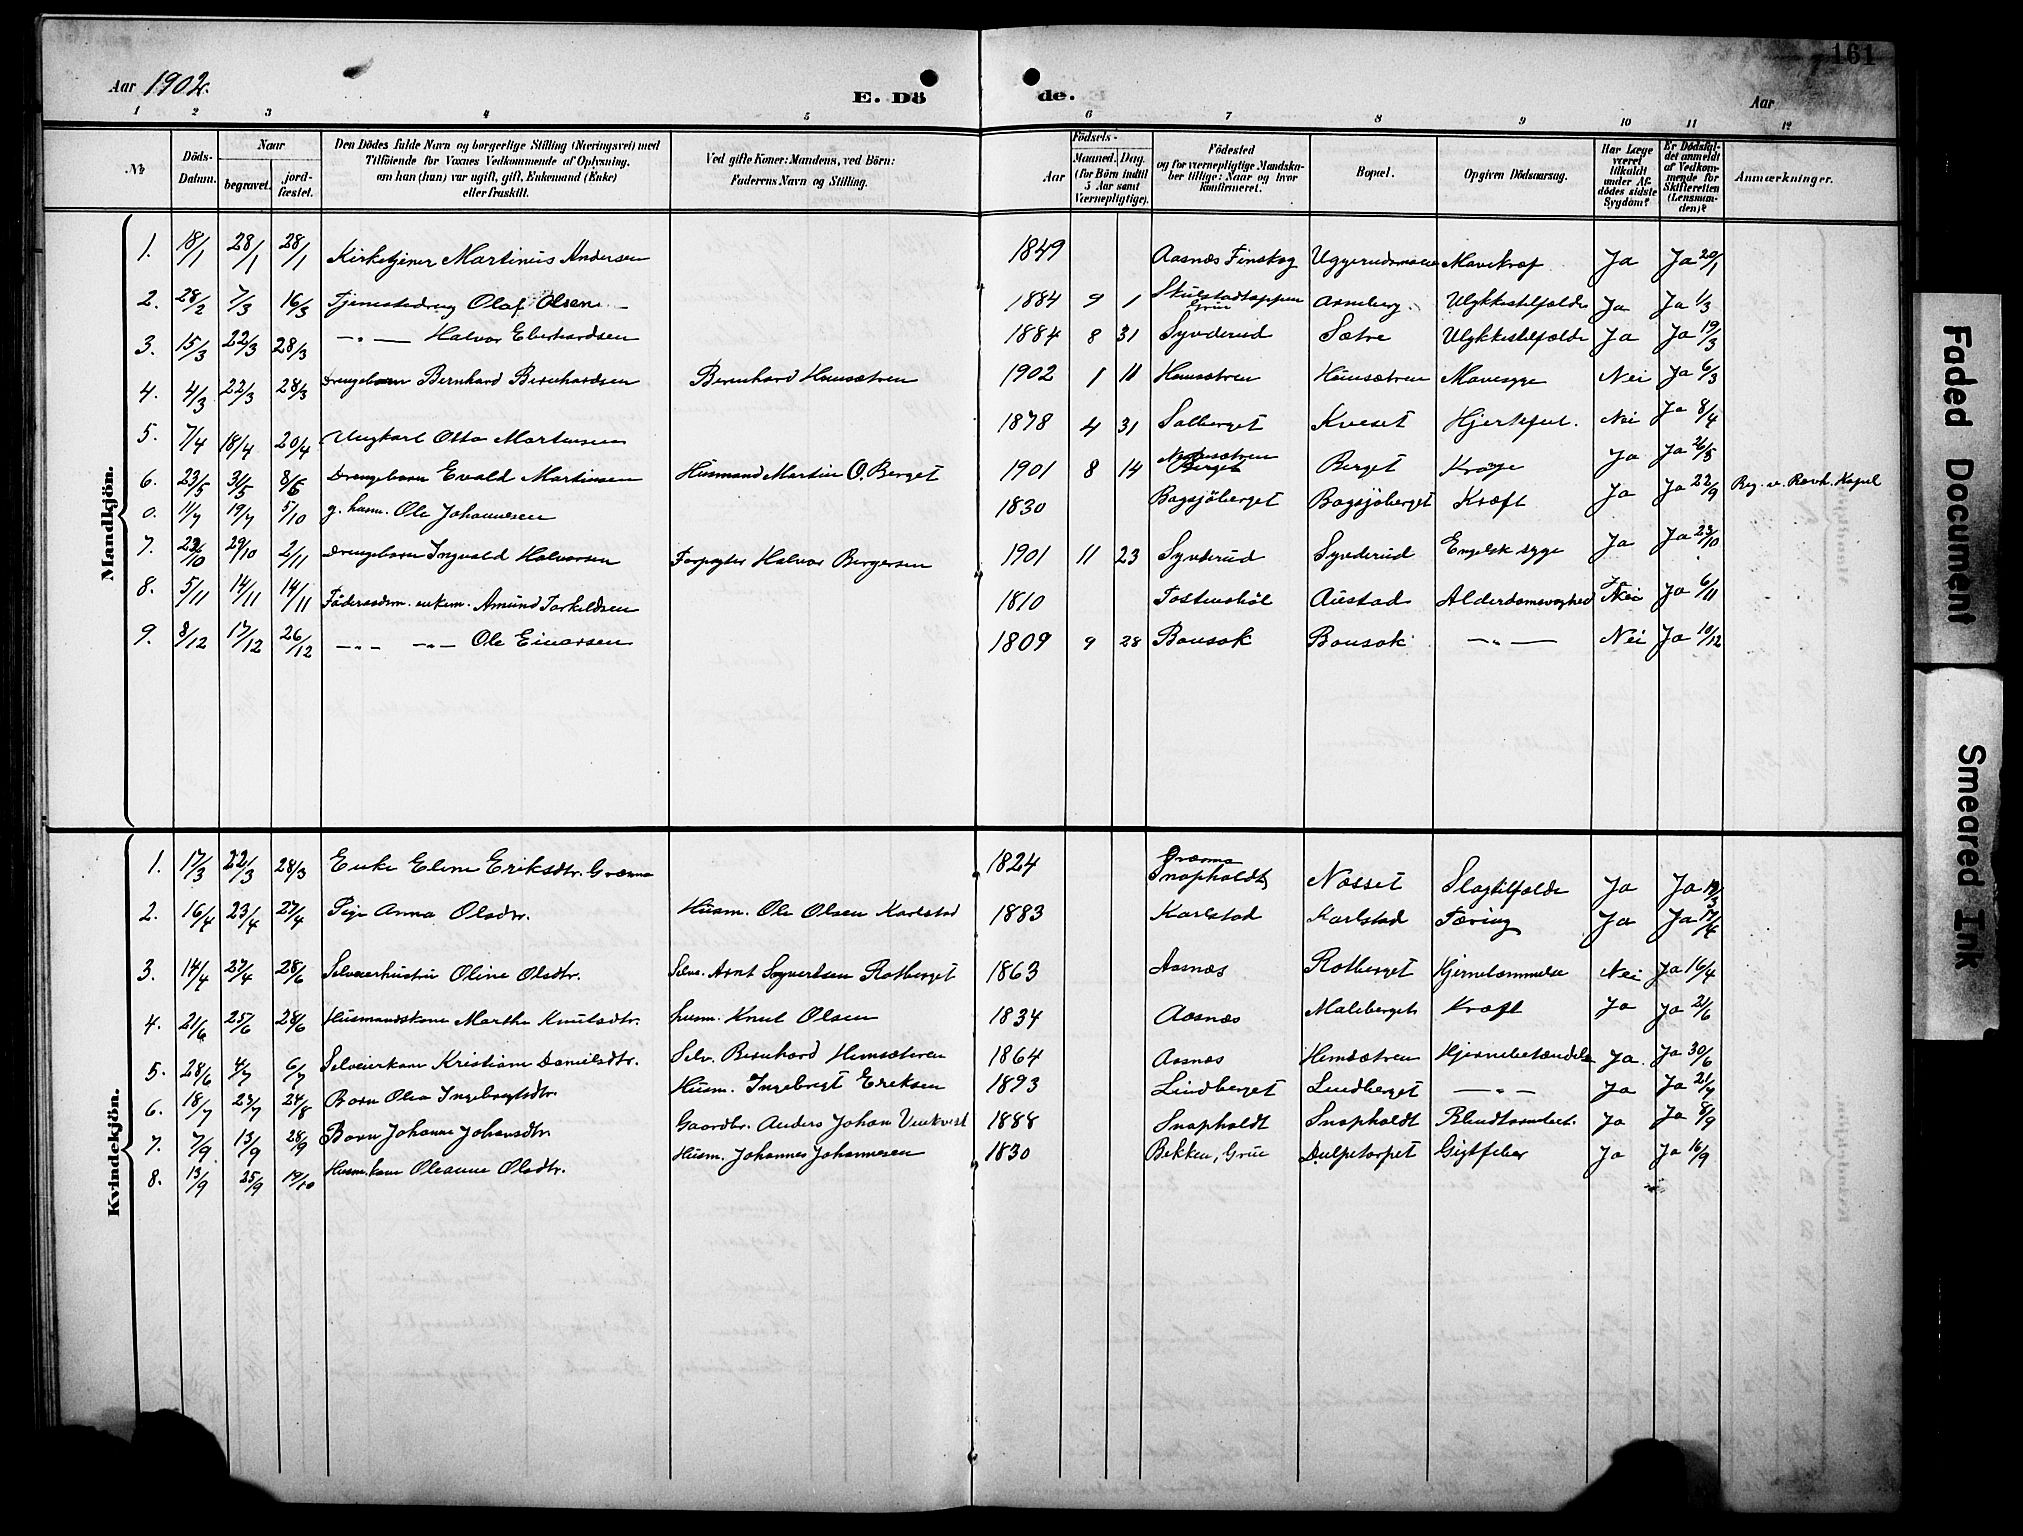 161
Aar 1902.
E. Dö de.
Aar
1 2 3 4 5 6 7 8 9 10 11 12
No
Döds-Datum.
Naar
begravet. jord-fæstet.
Den Dödes fulde Navn og borgerlige Stilling (Næringsvei) med
Tilföiende for Voxnes Vedkommende af Oplysning,
om han (hun) var ugift, gift, Enkemand (Enke)
eller fraskilt.
Ved gifte Koner: Mandens, ved Börn:
Faderens Navn og Stilling.
Födsels-
Aar Maaned. Dag.
(for Börn indtil
5 Aar samt
Værnepligtige).
Födested
og for værnepligtige Mandska-
ber tillige: Naar og hvor
konfirmeret.
Bopæl.
Opgiven Dödsaarsag.
Har Læge
været
tilkaldt
under Af-
dödes sidste
Sygdom?
Er Dödsfal-
det anmeldt
af Vedkom-
mende for
Skifteretten
(Lensman-
den)?
Anmærkninger.
Mandkjön.
1. 18/1 28/1 28/1 Kirketjener Martinus Andersen 1849 Aasnæs Finskog Mavekræf Ja Ja 20/1
2. 28/2 7/3 16/3 Tjenestedreng Olaf Olsen 1884 9 1 Skulstadtoppen Grue Arneberg Ulykkestilfælde Ja Ja 1/3
3. 15/3 22/3 28/3 —„— Halvor Eberhardsen 1884 8 31 Synderud Sætre Ulykkestilfælde Ja Ja 19/3
4. 4/3 22/3 28/3 Drengebarn Bernhard Bernhardsen Bernhard Hemsætren 1902 1 11 Hemsætren Hemsætren Mavesyge Nei Ja 6/3
5. 7/4 18/4 20/4 Ungkarl Otto Martinsen 1878 4 31 Solberget Kveset Hjertefeil. Nei Ja 8/4
6. 23/5 31/5 8/6 Drengebarn Evald Martinsen Husmand Martin O. Berget 1901 8 14 Berget Berget Ja Ja 26/5
0. 11/9 19/9 5/10 g. husm. Ole Johannesen 1830 Bagsjöberget Bagsjöberget Kræft Ja Ja 22/9 Beg. v. Kapel
7. 23/10 29/10 2/11 Drengebarn Ingvald Halvorsen Forpagter Halvor Bergersen 1901 11 23 Synderud Synderud Engelsk syge Ja Ja 23/10
8. 5/11 14/11 14/11 Föderaadsm. enkem. Amund Torkildsen 1810 Tostenshol Austad Alderdomssvaghed Nei Ja 6/11
9. 8/12 17/12 26/12 —„— —„— Ole Einarsen 1809 9 28 Bousok Bousok —„— Nei Ja 10/12
Kvindekjön.
1. 17/3 22/3 28/3 Enke Eline Eriksdtr. Græsmo 1824 Snapholdt Næsset Slagtilfælde Ja Ja 19/3
2. 16/4 23/4 27/4 Pige Anna Olsdtr. Husm. Ole Olsen Karlstad 1883 Karlstad Karlstad Tæring Ja Ja 17/4
3. 14/4 27/4 28/6 Selveierhustru Oline Olsdtr. Selve. Arnt Syvertsen Rotberget 1863 Aasnæs Rotberget Hjernelammelse Nei Ja 16/4
4. 21/6 25/6 28/6 Husmandskone Marthe Knutsdtr. husm. Knut Olsen 1834 Aasnæs Maleberget Kræft Ja Ja 21/6
5. 28/6 4/7 6/7 Selveierkone Kristiane Danielsdtr. Selv. Bernhard Hemsætren 1864 Aasnæs Hemsætren Hjernebetændelse Ja. Ja 30/6
6. 18/7 23/7 24/8 Barn Olea Ingebrigtsdtr. Husm. Ingebrigt Eriksen 1893 Lindberget Lindberget —„— Ja Ja 21/7
7. 7/9 13/9 28/9 Barn Johanne Johansdtr. Gaardbr. Anders Johan 1888 Snapholdt Snapholdt Blindtarmbet. Ja Ja 8/9
8. 13/9 25/9 19/10 Husm.kone Oleanne Olsdtr. Husm. Johannes Johannesen 1830 Bekken, Grue Dulpetorpet Gigtfeber Ja Ja 16/9
Faded Document
Smeared Ink